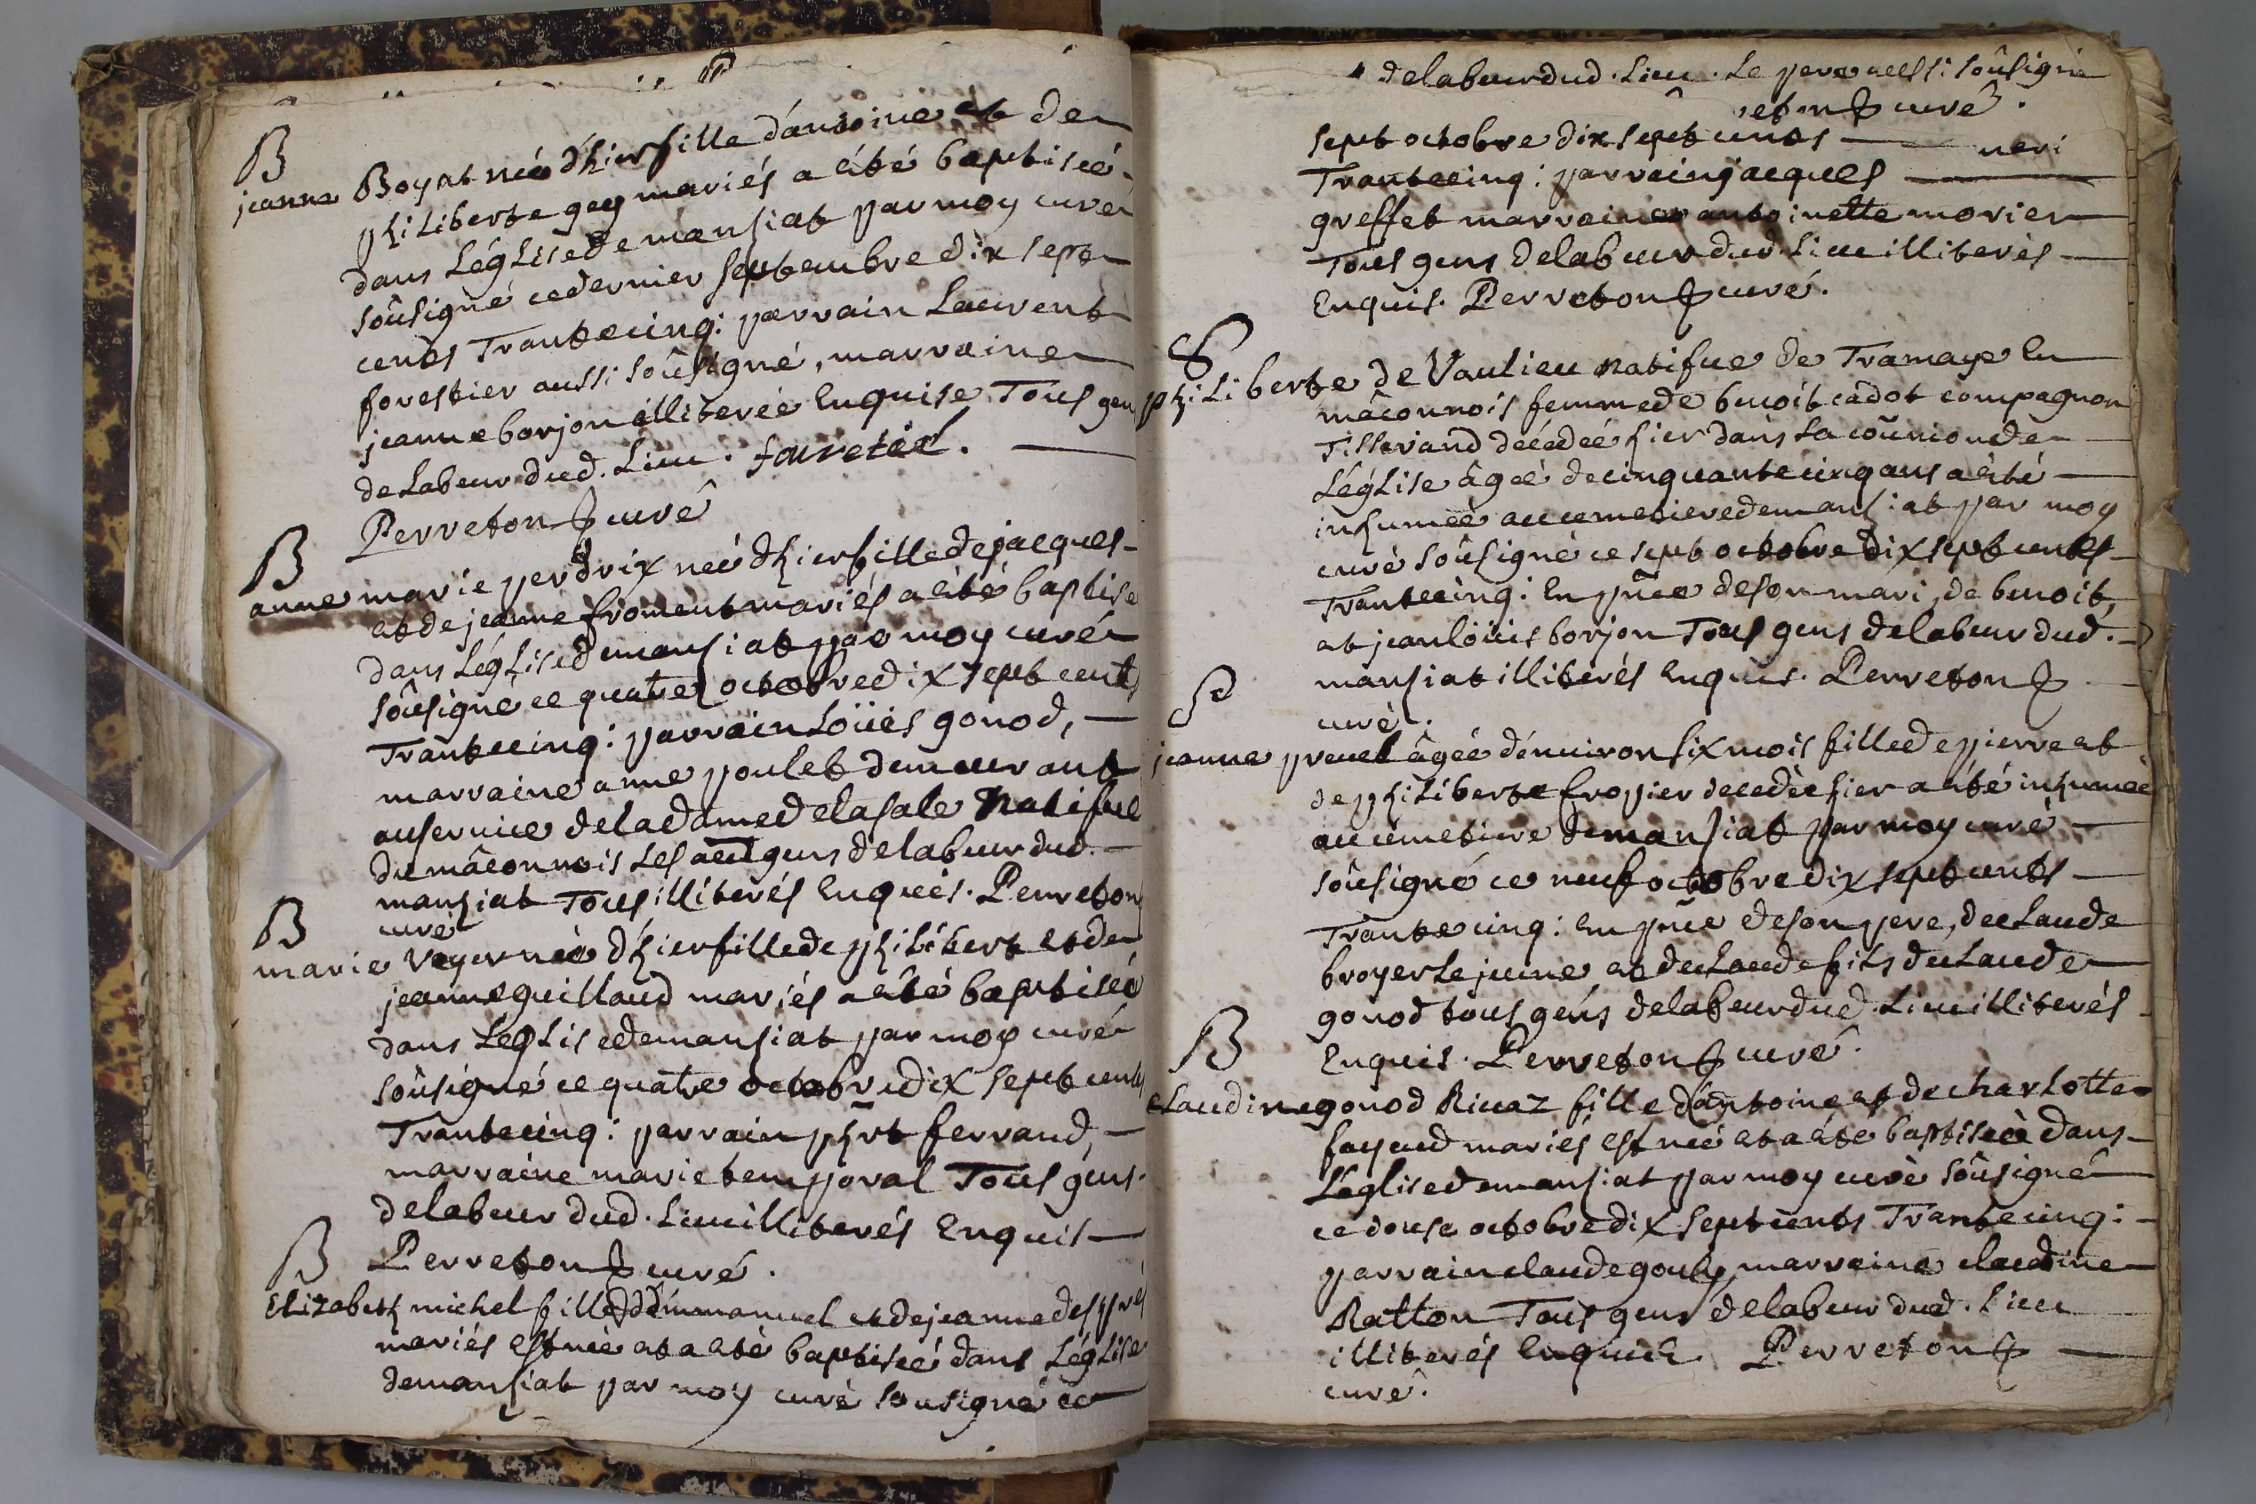 B
jeanne Boyat neé d'hier fille d'antoine et de
philiberte gey mariés a été baptiseé
dans Léglise de mansiat par moy curé
soûsigné ce dernier septembre dix sept
cents Trantecinq: parrain Laurent
forestier aussi soûsigné, marraine
jeanne borjon illitereé Enquise Tous gen
de Labeur dud. Lieu.
Perreton curé
B
anne marie perdrix neé d'hier fille de jacques
et de jeanne froment mariés a été baptise
dans Léglise de mansiat par moy curé
soûsigné ce quatre octobre dix sept cents
Trantecinq: parrain Loüis gonod,
marraine anne poulet demeurant
au service de la dame de la sale natifue
du mâconnois Les aut gens de labeur dud.
mansiat Tous illiterés Enquis. Perreton
curé
B
marie Voyer neé d'hier fille de philibert et de
jeanne guillaud mariés a été baptiseé
dans Léglise de mansiat par moy curé
soûsigné ce quatre octobre dix sept cents
Trantecinq: parrain phrt ferrand,
marraine marie temporal Tous gens
de labeur dud. Lieu illiterés Enquis
Perreton curé.
B
Elizabeth michel fille d'emmanuel et de jeanne des prés
mariés est neé et a été baptiseé dans Léglise
de mansiat par moy curé sousigné ce
de labeur dud. Lieu. Le pere aussi soûsigné
curé.
sept octobre dix sept cents
Trantecinq: parrain jacques
greffet marraine antoinette morier
Tous gens de labeur dud. Lieu illiterés
Enquis. Perreton curé.
S
philiberte de Vaulieu natifue de Tramaye En
mâconnois femme de benoit cadot compagnon
Tisserand décedeé hier dans la coûnion de
Léglise âgeé de cinquante cinq ans a été
inhumeé au cemetiere de mansiat par moy
curé soûsigné ce sept octobre dix sept cents
Trantecinq: En pñce de son mari, de benoit,
et jean loüis borjon Tous gens de labeur dud.
mansiat illiterés Enquis. Perreton
curé.
S
jeanne preuel âgée d'enuiron six mois fille de pierre et
de philiberte fropier decedeé hier a été inhumeé
au cemetiere de mansiat par moy curé
soûsigné ce neuf octobre dix sept cents
Trantecinq: En pñce de son pere, de claude
broyer le jeune et de claude fils de claude
gonod tous gens de labeur dud. Lieu illiterés
Enquis. Perreton curé.
B
claudine gonod Riuaz fille d'antoine et de charlotte
fayeud mariés est neé et a été baptiseé dans
Léglise de mansiat par moy curé soûsigné
ce douse octobre dix sept cents Trantecinq:
parrain claude gouly, marraine claudine
Ratton Tous gens de labeur dud. Lieu
illiterés Enquis Perreton
curé.